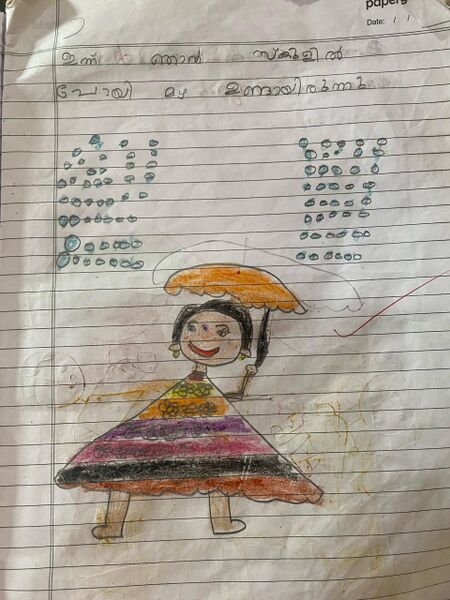 paperg
Date: / /
ഇന്ന് ഞാൻ സ്കൂളിൽ
പോയി മഴ ഉണ്ടായിരുന്നു